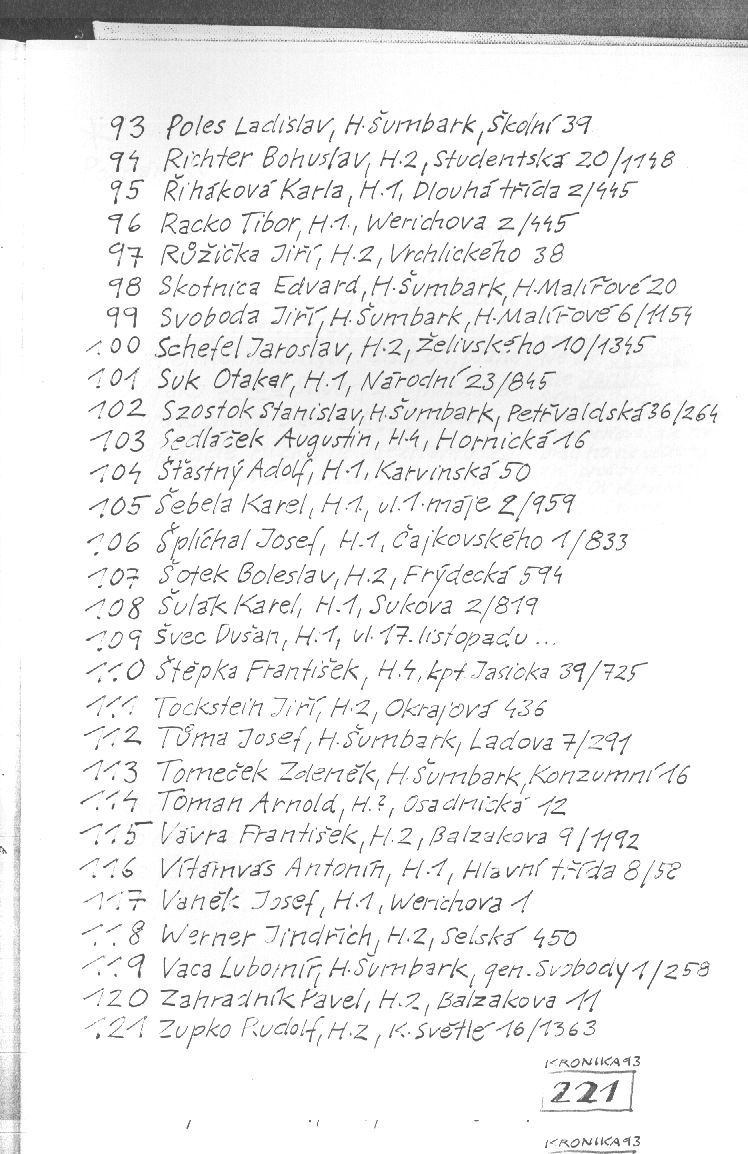 93 Poles Ladislav, H.Šumbark, Školní 39
94 Richter Bohuslav, H.2, Studentská 20/1148
95 Řiháková Karla, H.1, Dlouhá třída 2/445
96 Racko Tibor, H.1., Werichova 2/445
97 Růžička Jiří, H.2, Vrchlického 38
98 Skotnica Edvard, H.Šumbark, H.Malířové 20
99 Svoboda Jiří, H.Šumbark, H.Malířové 6/1154
100 Schefel Jaroslav, H.2, Želivského 10/1345
101 Suk Otakar, H.1, Národní 23/845
102 Szostok Stanislav, H.Šumbark, Petřvaldská 36/264
103 Sedláček Augustin, H.4, Hornická 16
104 Šťastný Adolf, H.1, Karvinská 50
105 Šebela Karel, H.1, ul.1.máje 2/959
106 Šplíchal Josef, H.1, Čajkovského 1/833
107 Šotek Boleslav, H.2, Frýdecká 594
108 Šulák Karel, H.1, Sukova 2/819
109 Švec Dušan, H.1, ul.17.listopadu ...
110 Štěpka František, H.4, kpt. Jasioka 39/725
111 Tockstein Jiří, H.2, Okrajová 436
112 Tůma Josef, H.Šumbark, Ladova 7/291
113 Tomeček Zdeněk, H.Šumbark, Konzumní 16
114 Toman Arnold, H.?, Osadnická 12
115 Vávra František, H.2, Balzakova 9/1192
116 Vítámvás Antonín, H.1, Hlavní třída 8/58
117 Vaněk Josef, H.1, Werichova 1
118 Werner Jindřich, H.2, Selská 450
119 Vaca Lubomír, H.Šumbark, gen.Svobody 1/258
120 Zahradník Pavel, H.2, Balzakova 11
121 Zupko Rudolf, H.2, K.Světlé 16/1363
KRONIKA 93
221
KRONIKA 93